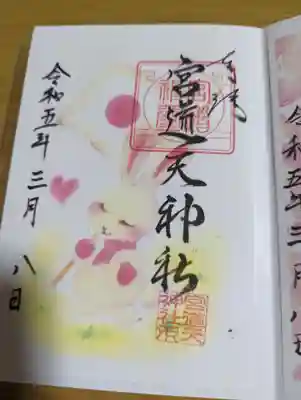 令和五年三月八日
奉拝
宮道天神社
宮道天
神社
令和五年三月八日